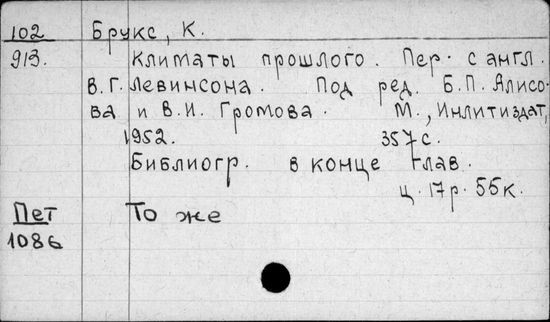 102 Брукс, К.
913. Климаты прошлого. Пер. с англ.
В. Г. Левинсона. Под ред. Б. П. Алисо-
ва и В. И. Громова. М., Инлитиздат,
1952. 357 с.
Библиогр. в конце глав.
ц. 17 р. 55 к.
Пет То же
1086